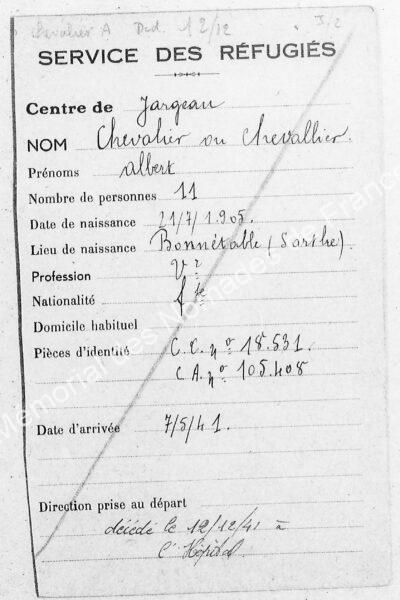 Chevalier A Ded. 12/12 J.2
SERVICE DES RÉFUGIÉS
Centre de Jargeau
NOM Chevalier ou Chevallier.
Prénoms albert
Nombre de personnes 11
Date de naissance 21/7/1905.
Lieu de naissance Bonnétable (Sarthe).
Profession Vr
Nationalité fse
Domicile habituel
Pièces d'identité C.C. no 18.531.
C.A. no 105.408
Date d'arrivée 7/5/41.
Direction prise au départ
décédé le 12/12/41 à
l'Hôpital
Mémorial des Nomades de France